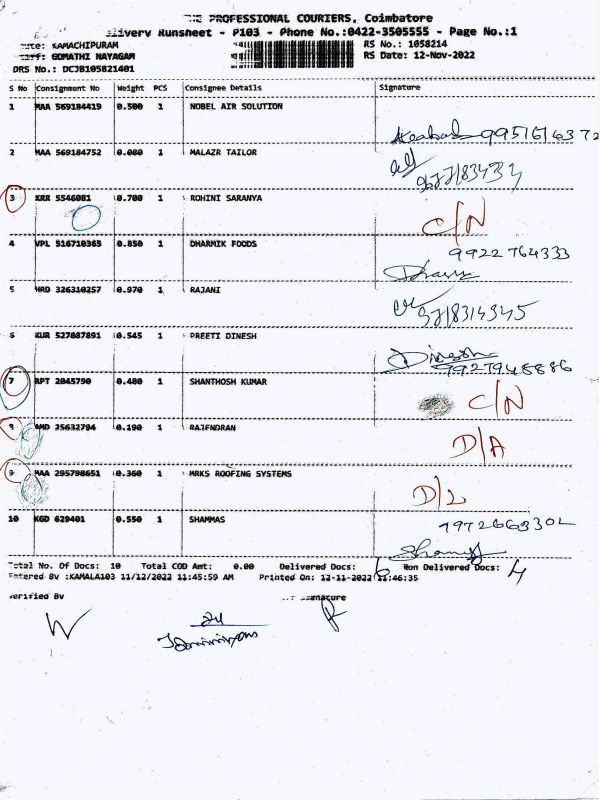 THE PROFESSIONAL COURIERS, Coimbatore
Delivery Runsheet - P103 - Phone No.:0422-3505555 - Page No.:1
Route: KAMACHIPURAM RS No.: 1058214
Staff: GOMATHI NAYAGAM RS Date: 12-Nov-2022
DRS No.: DCJB105821401
S No Consignment No Weight PCS Consignee Details Signature
1 MAA 569184419 0.500 1 NOBEL AIR SOLUTION
2 MAA 569184752 0.080 1 MALAZR TAILOR
3 KRR 5546081 0.700 1 ROHINI SARANYA
C/N
4 VPL 516710365 0.850 1 DHARMIK FOODS 9922764333
5 HRD 326310257 0.970 1 RAJANI
6 KUR 527087891 0.545 1 PREETI DINESH Dinesh
9927948886
7 RPT 2045790 0.480 1 SHANTHOSH KUMAR
C/N
8 AMD 25632794 0.190 1 RAJENDRAN
D/A
9 MAA 295798651 0.360 1 MRKS ROOFING SYSTEMS
D/L
10 KGD 629401 0.550 1 SHAMMAS
Total No. Of Docs: 10 Total COD Amt: 0.00 Delivered Docs: 6 Non Delivered Docs: 4
Entered By :KAMALA103 11/12/2022 11:45:59 AM Printed On: 12-11-2022 11:46:35
Verified By Signature